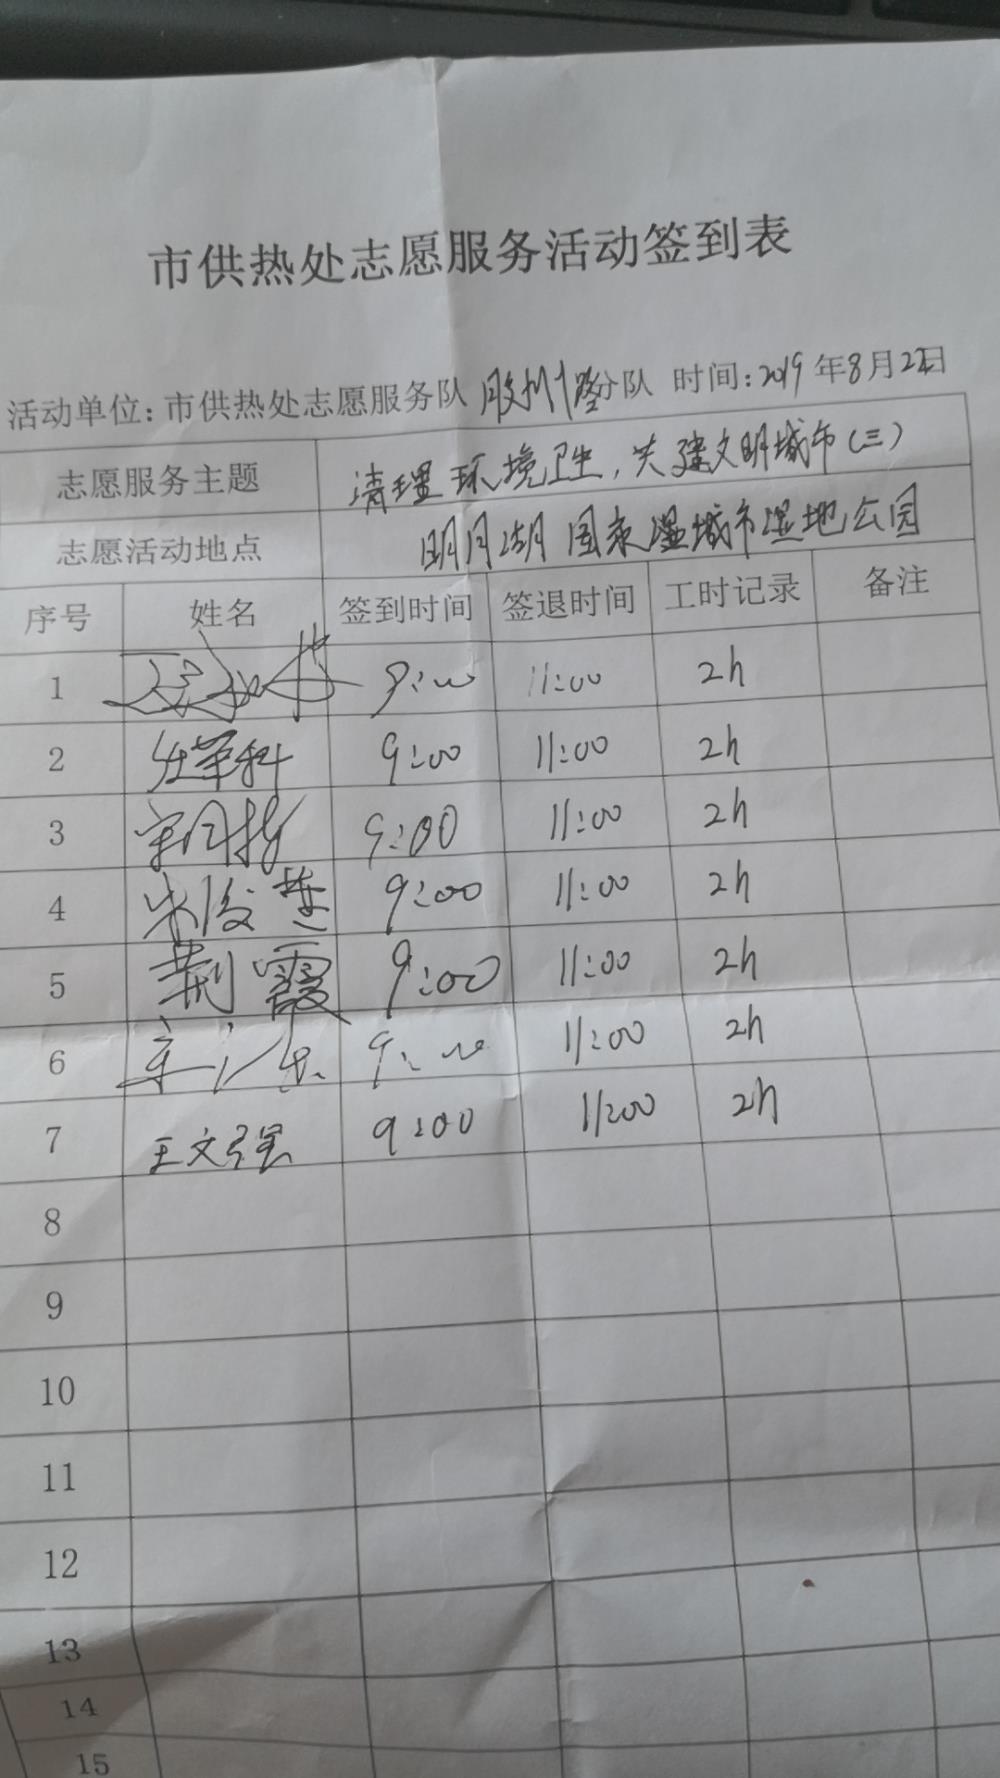 市供热处志愿服务活动签到表
活动单位: 市供热处志愿服务队 胶州路分队 时间: 2019 年 8 月 22 日
志愿服务主题 清理环境卫生, 共建文明城市 (三)
志愿活动地点 明月湖国家湿城市湿地公园
序号 姓名 签到时间 签退时间 工时记录 备注
1 9:00 11:00 2h
2 9:00 11:00 2h
3 9:00 11:00 2h
4 9:00 11:00 2h
5 荆霞 9:00 11:00 2h
6 9:00 11:00 2h
7 王文强 9:00 11:00 2h
8
9
10
11
12
13
14
15